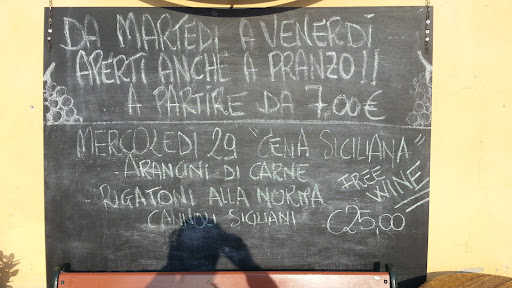 DA MARTEDÌ A VENERDÌ
APERTI ANCHE A PRANZO!!
A PARTIRE DA 7,00€
MERCOLEDÌ 29 "CENA SICILIANA"
ARANCINI DI CARNE
RIGATONI ALLA NORMA
CANNOLI SICILIANI
FREE WINE
€25,00